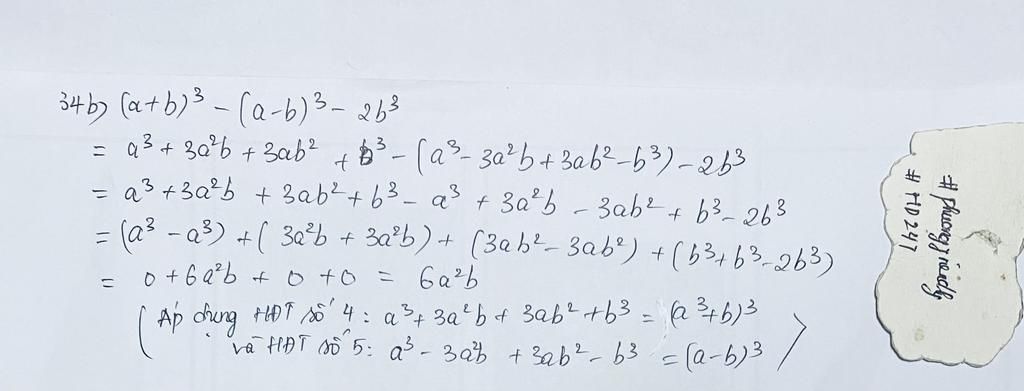 34b) (a+b)³ - (a-b)³ - 2b³
= a³ + 3a²b + 3ab² + b³ - (a³ - 3a²b + 3ab² - b³) - 2b³
= a³ + 3a²b + 3ab² + b³ - a³ + 3a²b - 3ab² + b³ - 2b³
= (a³ - a³) + (3a²b + 3a²b) + (3ab² - 3ab²) + (b³ + b³ - 2b³)
= 0 + 6a²b + 0 + 0 = 6a²b
(Áp dụng HĐT số 4: a³ + 3a²b + 3ab² + b³ = (a³+b)³
và HĐT số 5: a³ - 3a²b + 3ab² - b³ = (a-b)³)
#HD247